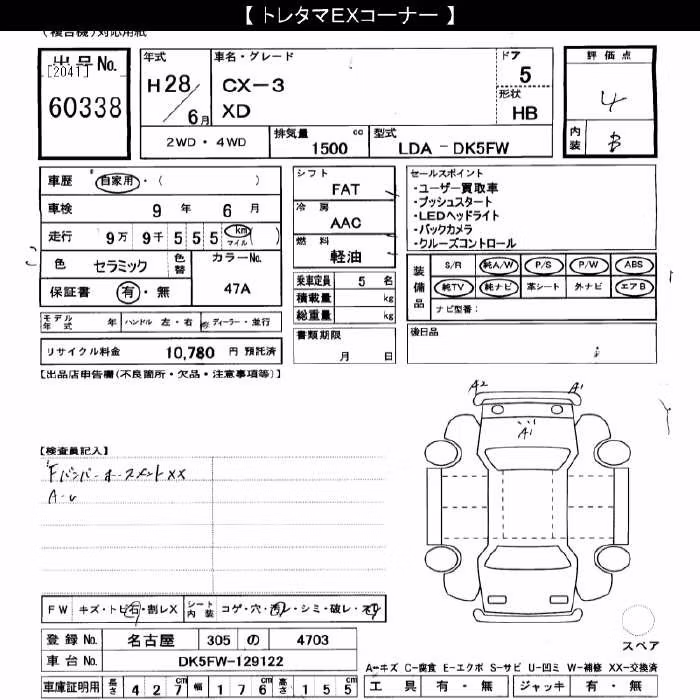 【 トレタマEXコーナー 】
(複合機)対応用紙
出品No.
[2041]
60338
年式
H28/6月
車名・グレード
CX-3
XD
ドア
5
形状
HB
評価点
4
内装
B
2WD・4WD
排気量 1500 cc
型式 LDA - DK5FW
車歴 自家用・( )
車検 9年 6月
走行 9万 9千 5 5 5 km マイル ( )
色 セラミック 色替
カラーNo.
47A
保証書 有・無
シフト
FAT
冷房
AAC
燃料
軽油
乗車定員 5 名
積載量 kg
総重量 kg
書類期限
月 日
セールスポイント
・ユーザー買取車
・プッシュスタート
・LEDヘッドライト
・バックカメラ
・クルーズコントロール
装備品
S/R 純A/W P/S P/W ABS
純TV 純ナビ 革シート 外ナビ エアB
ナビ型番:
後日品
モデル年式 年 ハンドル 左・右 ディーラー・並行
リサイクル料金 10,780 円 預託済
【出品店申告欄(不良箇所・欠品・注意事項等)】
【検査員記入】
Fバンパー
XX
A-U
A2
A1
A1
FW キズ・トビ石・割レX
シート内装 コゲ・穴・汚レ・シミ・破レ・
登録No. 名古屋 305 の 4703
車台No. DK5FW-129122
車庫証明用 長さ 427cm 幅 176cm 高さ 155cm
スペア
A=キズ C=腐食 E=エクボ S=サビ U=凹ミ W=補修 XX=交換済
工具 有・無 ジャッキ 有・無